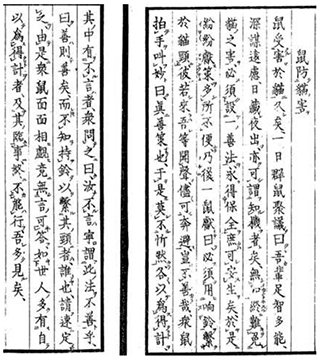 鼠防貓害
鼠受害於貓久矣一日群鼠聚議曰吾輩足智多能
深謀遠慮日藏夜出亦可謂知機者矣無如終難免
貓之害必須設一善法永得保全庶可安生矣於是
紛紛獻策多所不便乃後一鼠獻曰必須用响鈴繫
於貓頸後若來吾等聞聲儘可奔避豈不善哉眾鼠
拍手叫妙曰真善策也于是莫不忻歡各以為得計
其中有不言者眾問之曰汝不言寧謂此法不善乎
曰善則善矣而不知持鈴以繫其頸者誰也請速定
之由是衆鼠面面相覷竟無言可答如世人多有自
以為得計者及其臨事終不能行吾多見矣